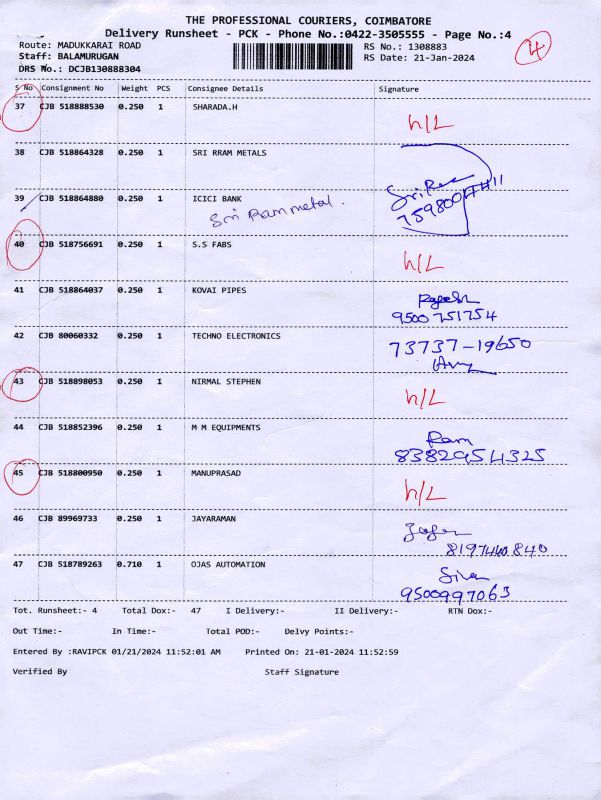 THE PROFESSIONAL COURIERS, COIMBATORE
Delivery Runsheet - PCK - Phone No.:0422-3505555 - Page No.:4
4
Route: MADUKKARAI ROAD
RS No.: 1308883
Staff: BALAMURUGAN
RS Date: 21-Jan-2024
DRS No.: DCJB130888304
S No Consignment No Weight PCS Consignee Details Signature
37 CJB 518888530 0.250 1 SHARADA.H
h/L
38 CJB 518864328 0.250 1 SRI RRAM METALS
39 CJB 518864880 0.250 1 ICICI BANK
Sri Ram metal.
40 CJB 518756691 0.250 1 S.S FABS
h/L
41 CJB 518864037 0.250 1 KOVAI PIPES
Rajesh
9500751754
42 CJB 80060332 0.250 1 TECHNO ELECTRONICS
73737-19650
43 CJB 518898053 0.250 1 NIRMAL STEPHEN
h/L
44 CJB 518852396 0.250 1 M M EQUIPMENTS
Ram
8382954325
45 CJB 518800950 0.250 1 MANUPRASAD
h/L
46 CJB 89969733 0.250 1 JAYARAMAN
8197440840
47 CJB 518789263 0.710 1 OJAS AUTOMATION
Siva
9500997063
Tot. Runsheet:- 4 Total Dox:- 47 I Delivery:- II Delivery:- RTN Dox:-
Out Time:- In Time:- Total POD:- Delvy Points:-
Entered By :RAVIPCK 01/21/2024 11:52:01 AM Printed On: 21-01-2024 11:52:59
Verified By Staff Signature